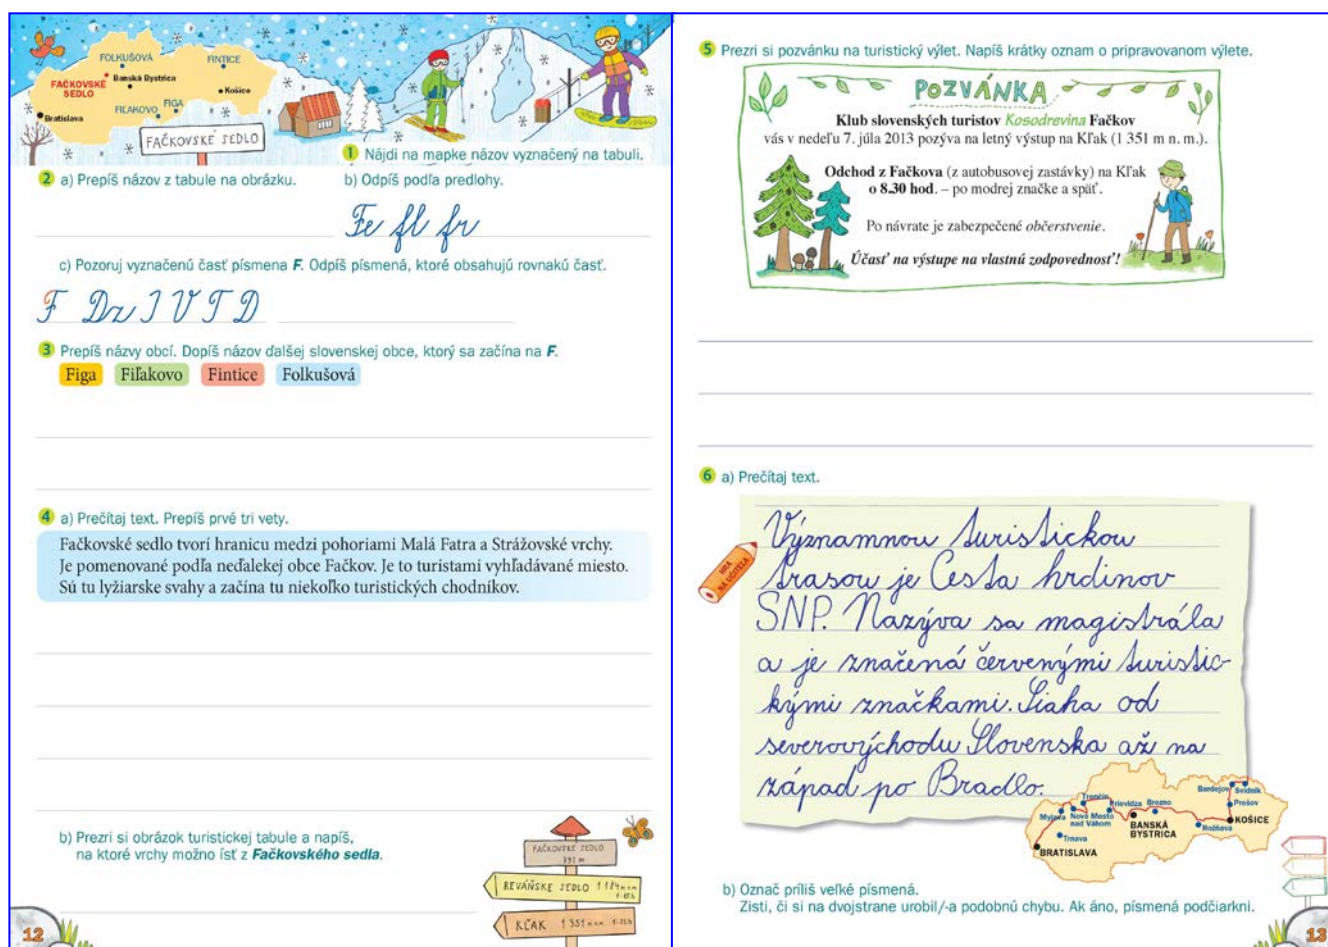 FOLKUŠOVÁ
FINTICE
Banská Bystrica
FAČKOVSKÉ
SEDLO
Košice
FIĽAKOVO
FIGA
Bratislava
FAČKOVSKÉ SEDLO
1 Nájdi na mapke názov vyznačený na tabuli.
2 a) Prepíš názov z tabule na obrázku.
b) Odpíš podľa predlohy.
Fe fl fr
c) Pozoruj vyznačenú časť písmena F. Odpíš písmená, ktoré obsahujú rovnakú časť.
F Dz I V T D
3 Prepíš názvy obcí. Dopíš názov ďalšej slovenskej obce, ktorý sa začína na F.
Figa Fiľakovo Fintice Folkušová
4 a) Prečítaj text. Prepíš prvé tri vety.
Fačkovské sedlo tvorí hranicu medzi pohoriami Malá Fatra a Strážovské vrchy.
Je pomenované podľa neďalekej obce Fačkov. Je to turistami vyhľadávané miesto.
Sú tu lyžiarske svahy a začína tu niekoľko turistických chodníkov.
b) Prezri si obrázok turistickej tabule a napíš,
na ktoré vrchy možno ísť z Fačkovského sedla.
FAČKOVSKÉ SEDLO
792 m
REVÁŇSKE SEDLO
KĽAK 1 351 m n m
12
5 Prezri si pozvánku na turistický výlet. Napíš krátky oznam o pripravovanom výlete.
POZVÁNKA
Klub slovenských turistov Kosodrevina Fačkov
vás v nedeľu 7. júla 2013 pozýva na letný výstup na Kľak (1 351 m n. m.).
Odchod z Fačkova (z autobusovej zastávky) na Kľak
o 8.30 hod. – po modrej značke a späť.
Po návrate je zabezpečené občerstvenie.
Účasť na výstupe na vlastnú zodpovednosť!
6 a) Prečítaj text.
HRA
NA UČITEĽA
Významnou turistickou
trasou je Cesta hrdinov
SNP. Nazýva sa magistrála
a je značená červenými turistic-
kými značkami. Siaha od
severovýchodu Slovenska až na
západ po Bradlo.
Bardejov Svidník
Trenčín Prievidza Brezno Prešov
Myjava Nové Mesto
nad Váhom
BANSKÁ
BYSTRICA
Rožňava
KOŠICE
Trnava
BRATISLAVA
b) Označ príliš veľké písmená.
Zisti, či si na dvojstrane urobil/-a podobnú chybu. Ak áno, písmená podčiarkni.
13